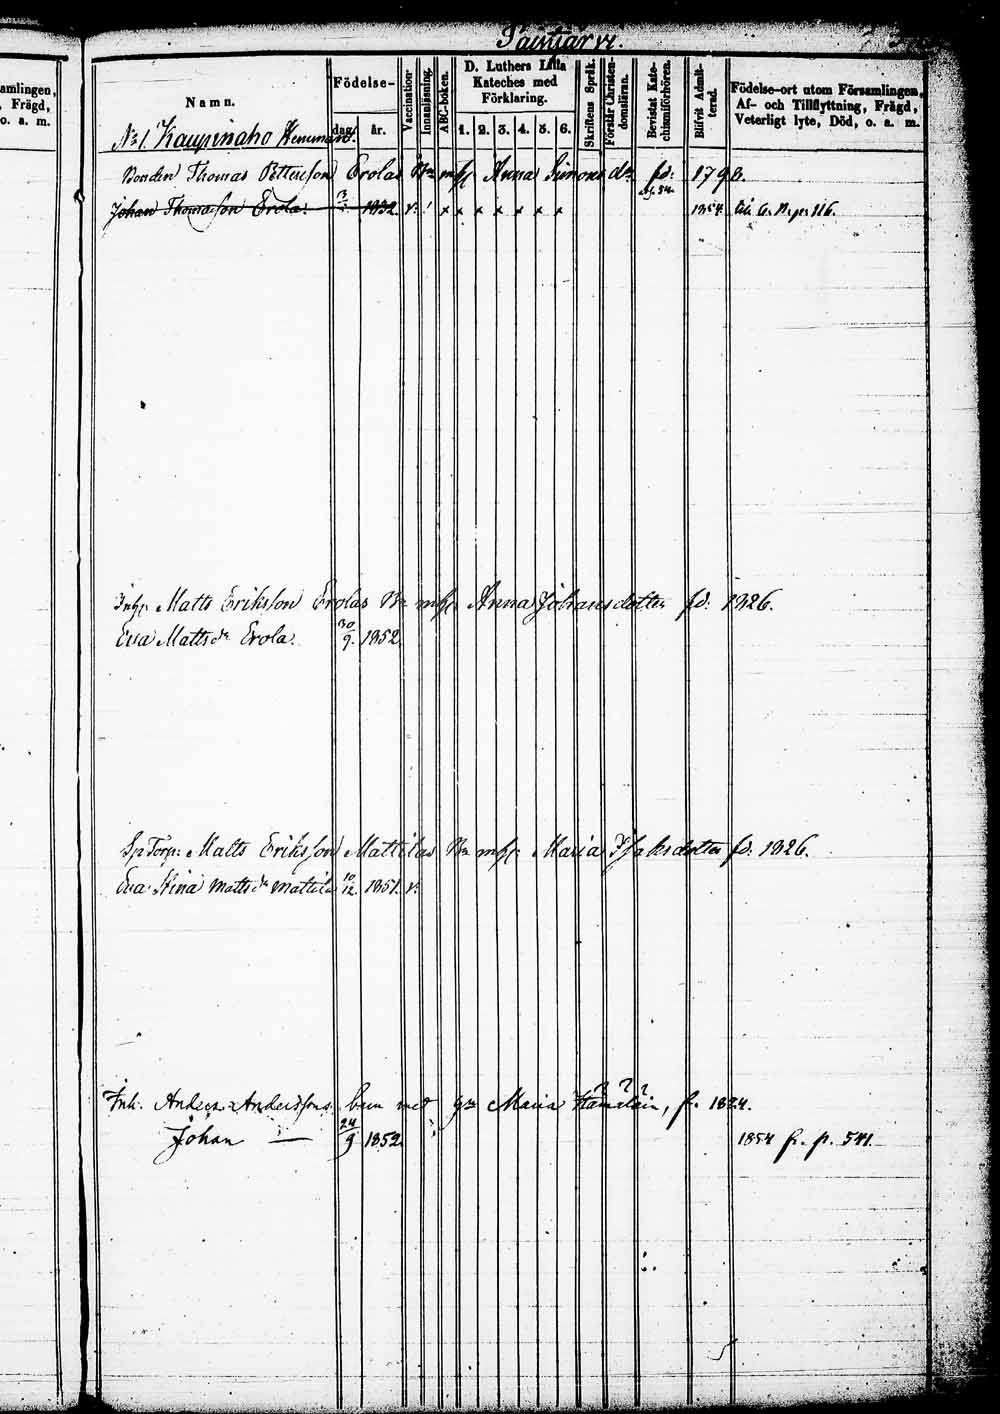 amlingen,
Frägd,
o. a. m.
Namn.
Födelse-
dag.
år.
Vaccination.
Innanläsning.
ABC-boken.
D. Luthers Lilla
Kateches med
Förklaring.
1. 2. 3. 4. 5. 6.
Skriftens Språk.
Förstår Christen-
domsläran.
Bevistat Kate-
chismiförhören.
Blifvit Admit-
terad.
Födelse-ort utom Församlingen,
Af- och Tillflyttning, Frägd,
Veterligt lyte, Död, o. a. m.
No 1. Kaupinaho Hemman.
Bonden Thomas Petterson Erolas Bn m h. Anna Simonsdr fd: 1793.
Johan Thomasson Erola. 1832. v. ! x x x x x x x 1854 till p. 116.
Inh. Matts Eriksson Erolas Bn m h. Anna Johansdotter fd: 1826.
Eva Mattsdr Erola. 30/9. 1852.
Sp Torp: Matts Eriksson Mattilas Bn m h. Maria Isaksdotter fd. 1826.
Eva Stina Mattsdr Mattila 10/12. 1851. v.
Inh. Anders Anderssons barn med Maria f. 1824.
Johan — 24/9 1852. 1854 fr. p. 541.